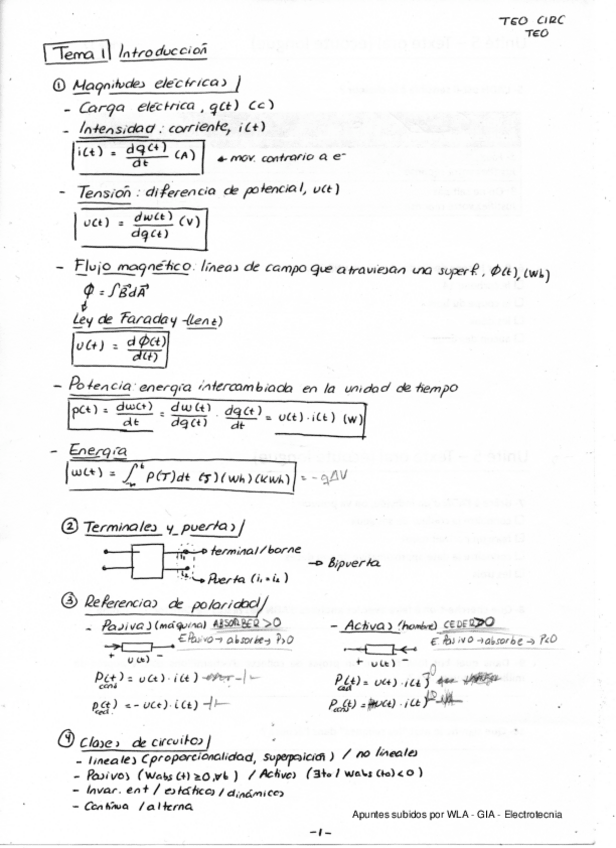 TEO CIRC
TEO
Tema 1 Introducción
① Magnitudes eléctricas
- Carga eléctrica, q(t) (C)
- Intensidad: corriente, i(t)
i(t) = dq(t)/dt (A) ← mov. contrario a e-
- Tensión: diferencia de potencial, u(t)
u(t) = dw(t)/dq(t) (V)
- Flujo magnético: líneas de campo que atraviesan una superf., Φ(t), (Wb)
Φ = ∫B⃗dA⃗
Ley de Faraday-(Lenz)
u(t) = dΦ(t)/d(t)
- Potencia: energía intercambiada en la unidad de tiempo
p(t) = dw(t)/dt = dw(t)/dq(t) · dq(t)/dt = u(t)·i(t) (W)
- Energía
w(t) = ∫ P(T)dt (J) (Wh) (KWh) = -qΔV
② Terminales y puertas
terminal/borne
→ Bipuerta
Puerta
③ Referencias de polaridad
- Pasivas (máquina) ABSORBER>0
- Activas (hombre) CEDER>0
E Pasivo → absorbe → P>0
E Pasivo → absorbe → P<0
u(t) -
+ u(t) -
P(t) cons = u(t)·i(t)
P(t) ced = u(t)·i(t)
P(t) ced = -u(t)·i(t)
P(t) cons = u(t)·i(t)
④ Clases de circuitos
- lineales (proporcionalidad, superposición) / no lineales
- Pasivos (Wabs(t)≥0,∀t) / Activos (∃to / Wabs(to)<0)
- Invar. ent / estáticos / dinámicos
- Continua / alterna
Apuntes subidos por WLA - GIA - Electrotecnia
-1-